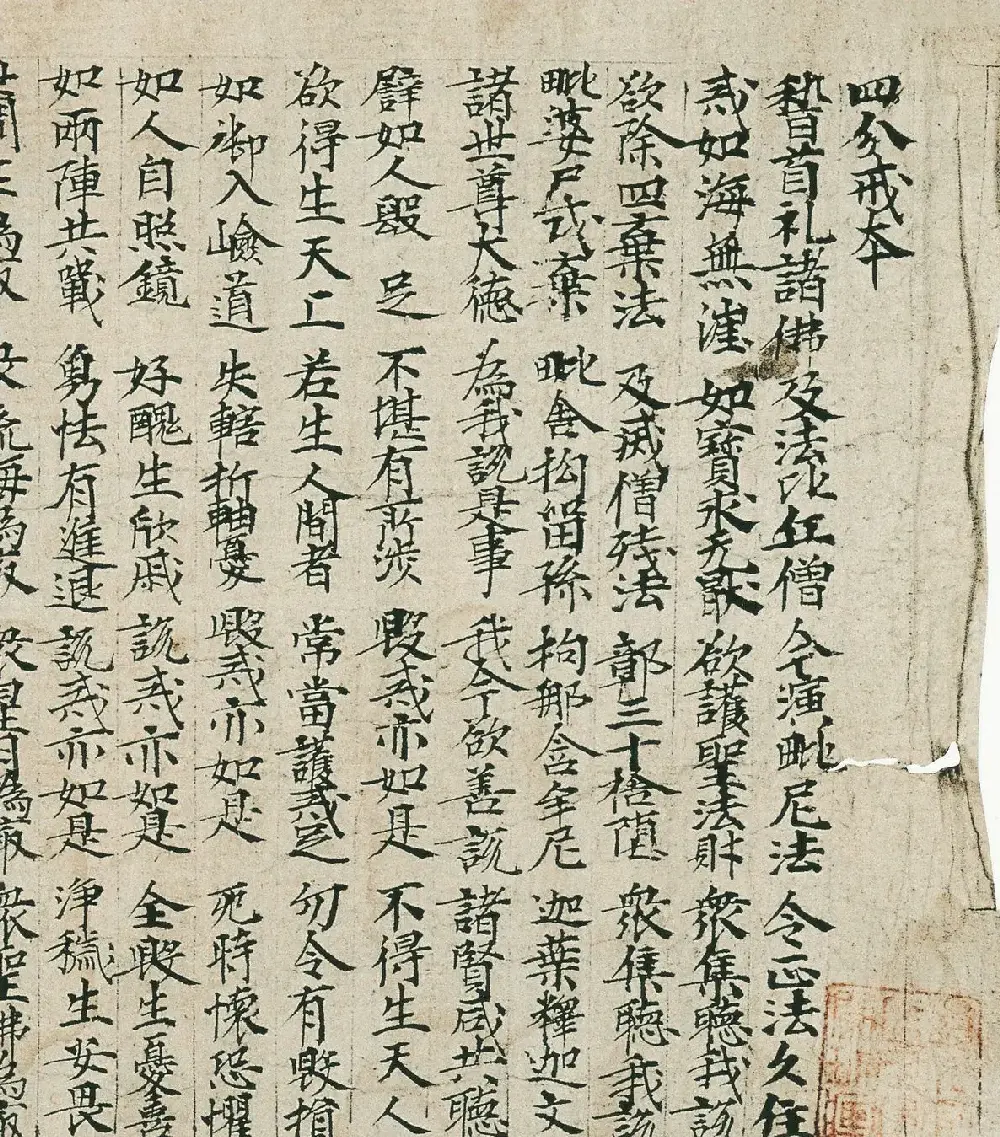 四分戒本
稽首礼諸佛 及法比丘僧 今演毗尼法 令正法久住
戒如海無涯 如寶求无猒 欲護聖法財 衆集聽我說
欲除四棄法 及滅僧殘法 鄣三十捨墮 衆集聽我說
毗婆尸式棄 毗舍拘留孫 拘那含牟尼 迦葉釋迦文
諸世尊大德 為我說是事 我今欲善說 諸賢咸共聽
譬如人毀足 不堪有所涉 毀戒亦如是 不得生天人
欲得生天上 若生人間者 常當護戒足 勿令有毀損
如御入嶮道 失轄折軸憂 毀戒亦如是 死時懷恐懼
如人自照鏡 好醜生欣戚 說戒亦如是 全毀生憂喜
如兩陣共戰 勇怯有進退 說戒亦如是 淨穢生安畏
世間王為最 衆流海為最 衆星月為最 衆聖佛為最